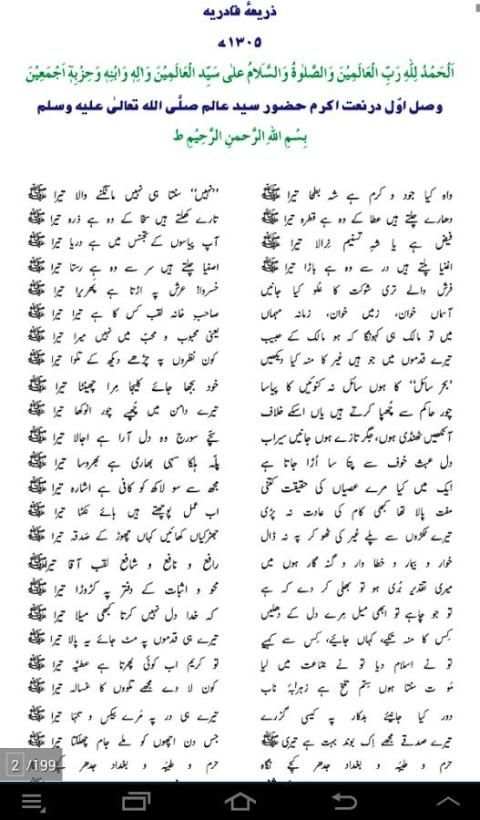 ذریعۂ قادریہ
۱۳۰۵ھ
اَلْحَمْدُ لِلّٰہِ رَبِّ الْعَالَمِیْنَ وَالصَّلٰوۃُ وَالسَّلَامُ عَلٰی سَیِّدِ الْعَالَمِیْنَ وَاٰلِہٖ وَابْنِہٖ وَحِزْبِہٖ اَجْمَعِیْنَ
وصل اوّل درنعت اکرم حضور سید عالم صلَّی اللہ تعالیٰ علیہ وسلم
بِسْمِ اللہِ الرَّحمنِ الرَّحِیْمِ ط
واہ کیا جود و کرم ہے شہِ بطحا تیرا ﷺ ''نہیں'' سنتا ہی نہیں مانگنے والا تیرا ﷺ
دھارے چلتے ہیں عطا کے وہ ہے قطرہ تیرا ﷺ تارے کھلتے ہیں سخا کے وہ ہے ذرہ تیرا ﷺ
فیض ہے یا شہِ تسنیم نرالا تیرا ﷺ آپ پیاسوں کے تجسس میں ہے دریا تیرا ﷺ
اغنیا پلتے ہیں در سے وہ ہے باڑا تیرا ﷺ اصفیا چلتے ہیں سر سے وہ ہے رستا تیرا ﷺ
فرش والے تری شوکت کا علو کیا جانیں خسروا! عرش پہ اڑتا ہے پھریرا تیرا ﷺ
آسماں خوان، زمیں خوان، زمانہ مہماں صاحبِ خانہ لقب کس کا ہے تیرا تیرا ﷺ
میں تو مالک ہی کہونگا کہ ہو مالک کے حبیب یعنی محبوب و محب میں نہیں میرا تیرا ﷺ
تیرے قدموں میں جو ہیں غیر کا منہ کیا دیکھیں کون نظروں پہ چڑھے دیکھ کے تلوا تیرا ﷺ
''بحر سائل'' کا ہوں سائل نہ کنوئیں کا پیاسا خود بجھا جائے کلیجا مرا چھینٹا تیرا ﷺ
چور حاکم سے چھپا کرتے ہیں یاں اسکے خلاف تیرے دامن میں چھپے چور انوکھا تیرا ﷺ
آنکھیں ٹھنڈی ہوں، جگر تازے ہوں جانیں سیراب سچے سورج وہ دل آرا ہے اجالا تیرا ﷺ
دل عبث خوف سے پتا سا اڑا جاتا ہے پلہ ہلکا سہی بھاری ہے بھروسا تیرا ﷺ
ایک میں کیا مرے عصیاں کی حقیقت کتنی مجھ سے سو لاکھ کو کافی ہے اشارہ تیرا ﷺ
مفت پالا تھا کبھی کام کی عادت نہ پڑی اب عمل پوچھتے ہیں ہائے نکما تیرا ﷺ
تیرے ٹکڑوں سے پلے غیر کی ٹھوکر پہ نہ ڈال جھڑکیاں کھائیں کہاں چھوڑ کے صدقہ تیرا ﷺ
خوار و بیمار و خطا وار و گنہ گار ہوں میں رافع و نافع و شافع لقب آقا تیرا ﷺ
میری تقدیر بُری ہو تو بھلی کر دے کہ ہے محو و اثبات کے دفتر پہ کڑوڑا تیرا ﷺ
تو جو چاہے تو ابھی میل مرے دل کے دھلیں کہ خدا دل نہیں کرتا کبھی میلا تیرا ﷺ
کس کا منہ تکیے، کہاں جائیے، کس سے کہیے تیرے ہی قدموں پہ مٹ جائے یہ پالا تیرا ﷺ
تو نے اسلام دیا تو نے جماعت میں لیا تو کریم اب کوئی پھرتا ہے عطیہ تیرا ﷺ
موت سنتا ہوں ستم تلخ ہے زہرابۂ ناب کون لا دے مجھے تلووں کا غسالہ تیرا ﷺ
دور کیا جانیے بدکار پہ کیسی گزرے تیرے ہی در پہ مرے بیکس و تنہا تیرا ﷺ
تیرے صدقے مجھے اک بوند بہت ہے تیری ﷺ جس دن اچھوں کو ملے جام چھلکتا تیرا ﷺ
حرم و طیبہ و بغداد جدھر کیجے نگاہ حرم و طیبہ و بغداد جدھر
2 /199